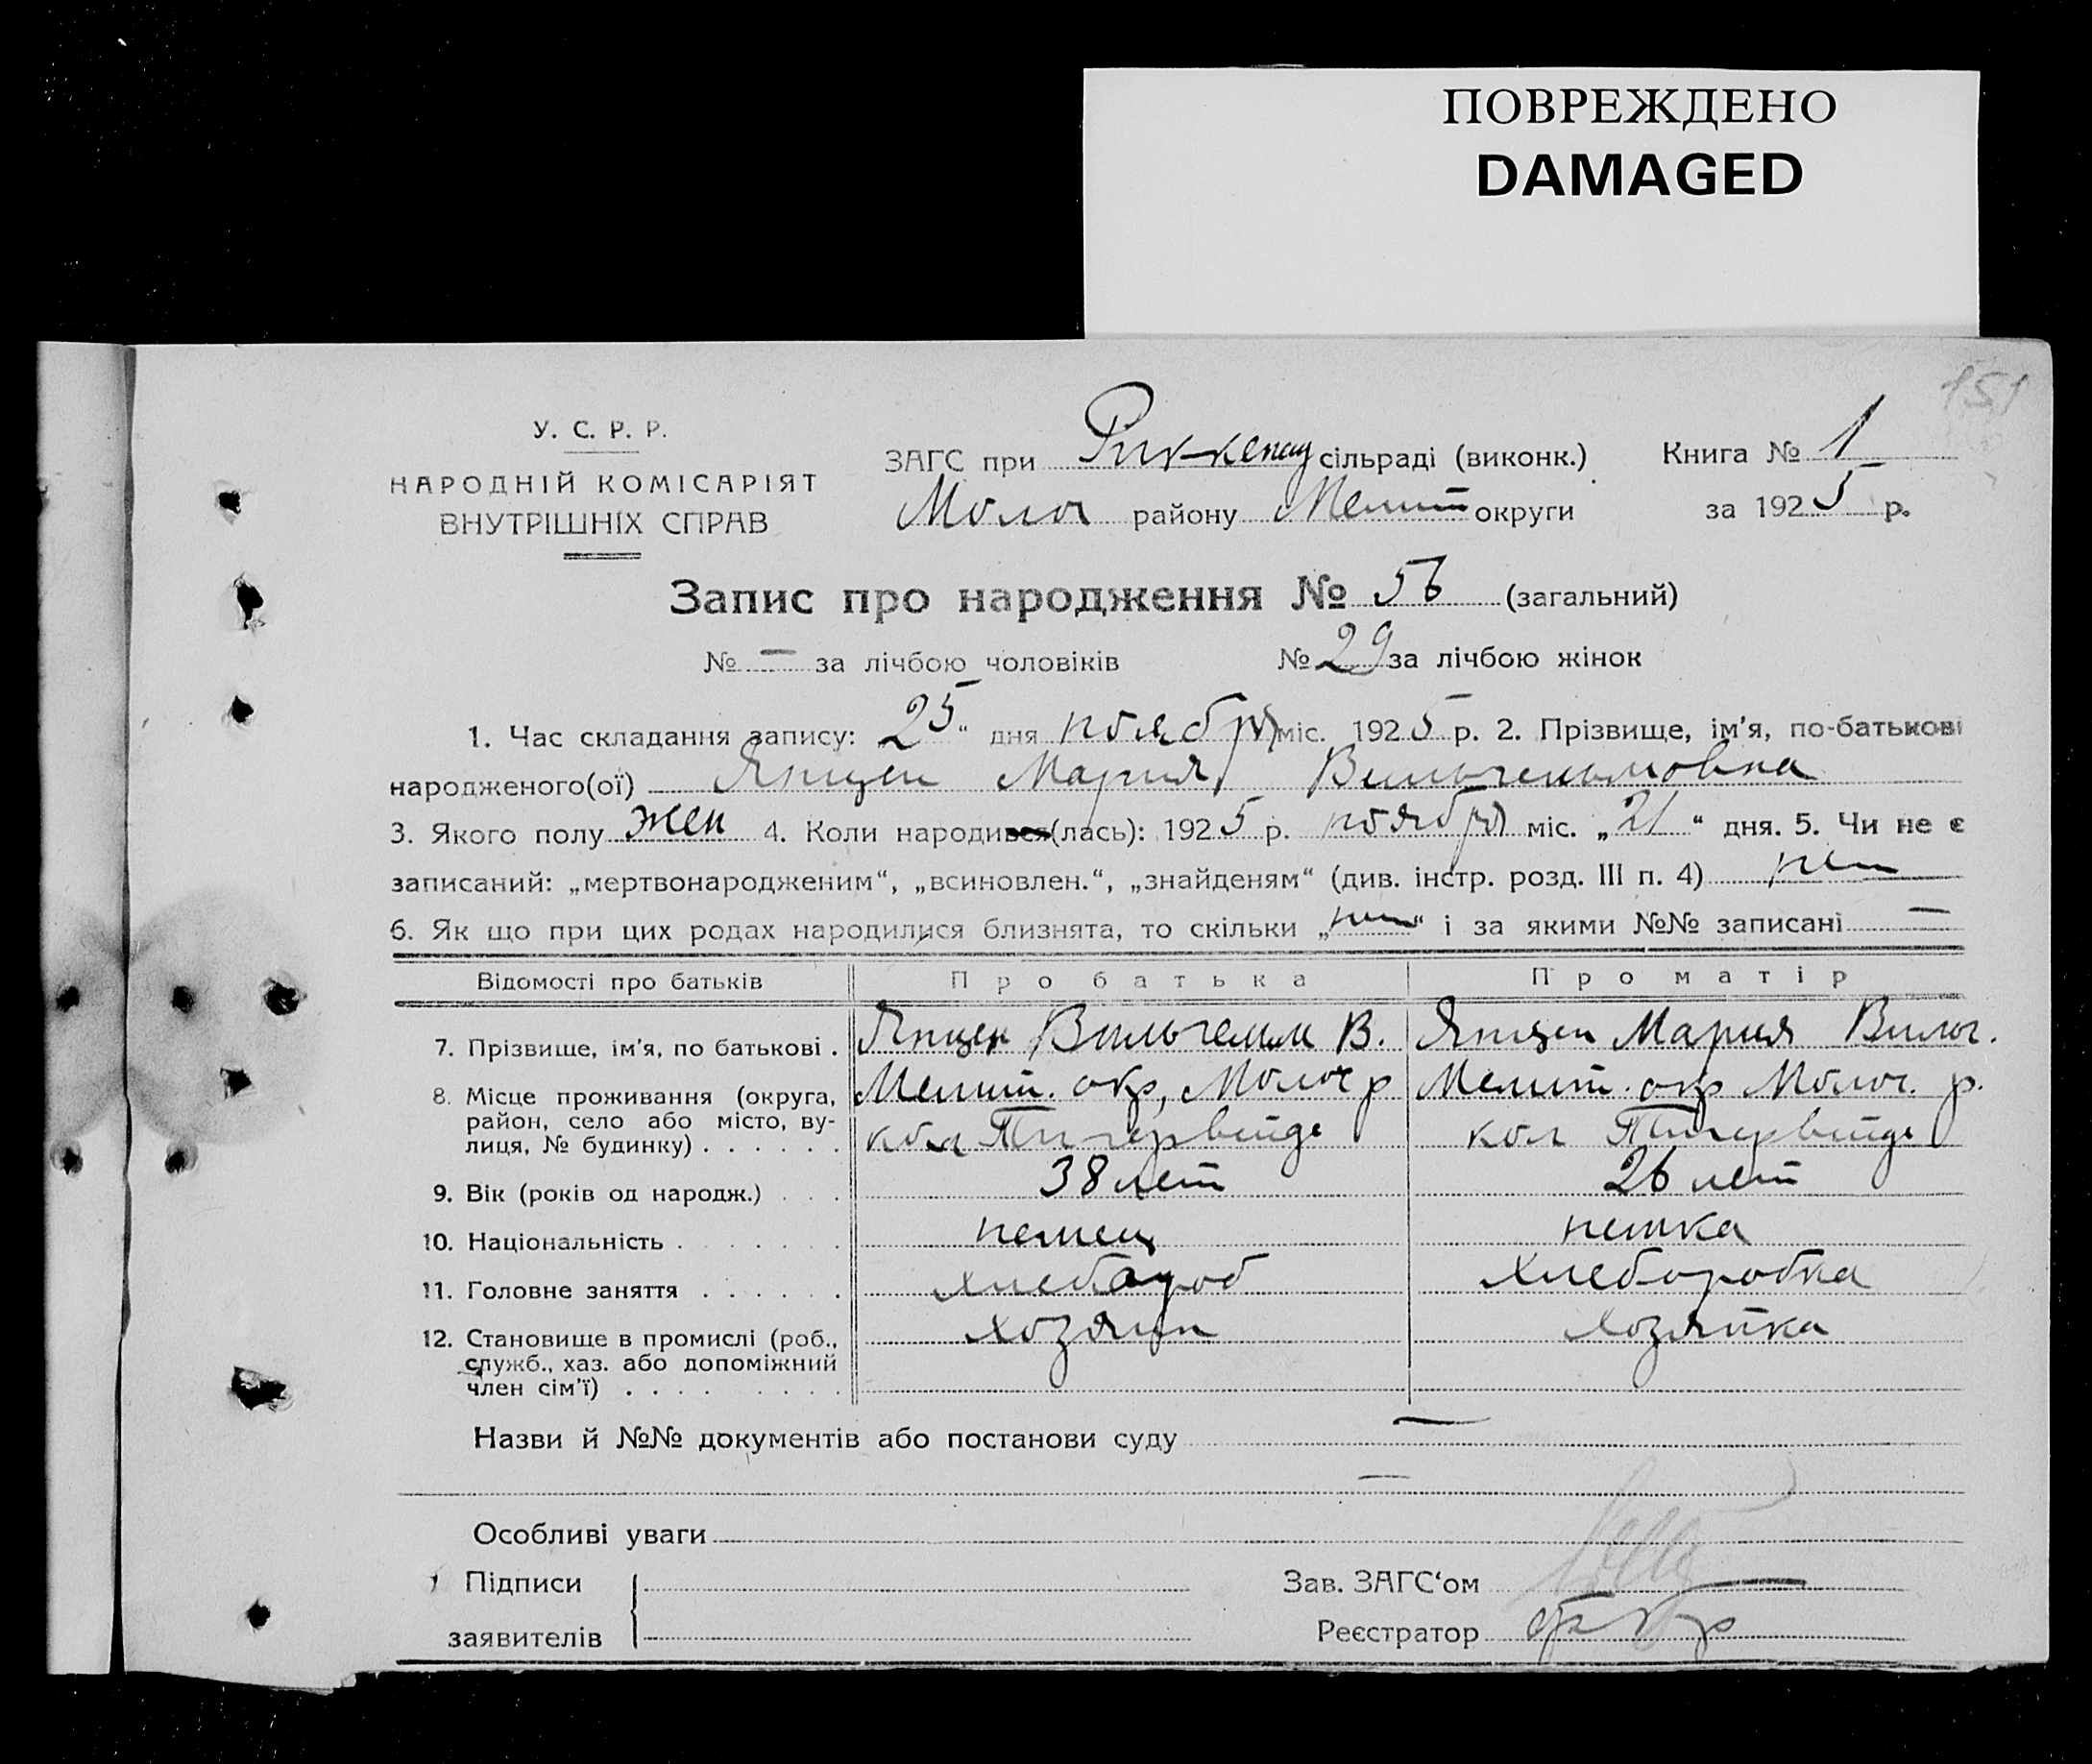 ПОВРЕЖДЕНО
DAMAGED
151
У. С. Р. Р.
НАРОДНІЙ КОМІСАРІЯТ
ВНУТРІШНІХ СПРАВ
ЗАГС при Риккенау сільраді (виконк.) Книга № 1
Молоч району Мелит округи за 1925 р.
Запис про народження № 56 (загальний)
№ — за лічбою чоловіків № 29 за лічбою жінок
1. Час складання запису: 25 “ дня ноября міс. 1925 р. 2. Прізвище, ім'я, по-батькові
народженого(ої) Янцен Мария Вильгельмовна
3. Якого полу жен 4. Коли народився(лась): 1925 р. ноября міс. „21“ дня. 5. Чи не є
записаний: „мертвонародженим“, „всиновлен.“, „знайденям“ (див. інстр. розд. III п. 4) нет
6. Як що при цих родах народилися близнята, то скільки „нет“ і за якими №№ записані —
Відомості про батьків Про батька Про матір
7. Прізвище, ім'я, по батькові . Янцен Вильгельм В. Янцен Мария Вильг.
8. Місце проживання (округа, Мелит. окр, Молоч р Мелит. окр Молоч. р.
район, село або місто, ву-
лиця, № будинку) . . . . . . кол Тигервейде кол Тигервейде
9. Вік (років од народж.) . . . 38 лет 26 лет
10. Національність . . . . . . . немец немка
11. Головне заняття . . . . . . хлебороб хлеборобка
12. Становище в промислі (роб., хозяин хозяйка
служб., хаз. або допоміжний
член сім'ї) . . . . . . . .
Назви й №№ документів або постанови суду —
—
Особливі уваги
Підписи
заявителів
Зав. ЗАГС‘ом
Реєстратор